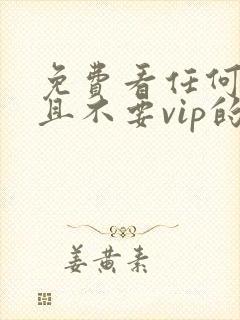 免费看任何
且不要vip的
姜黄素